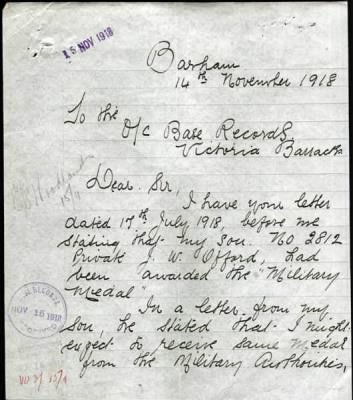 15 NOV 1918
Barham
14th November 1918
To the
O/C Base Records
Victoria Barracks
Dear Sir,
I have your letter
dated 17th July 1918, before me
stating that my son. No 2812
Private J. W. Offord, had
been awarded the "Military
Medal"
In a letter from my
son, he stated that I might
expect to receive same medal
from the Military Authorities,
RECORDS
NOV 16 1918